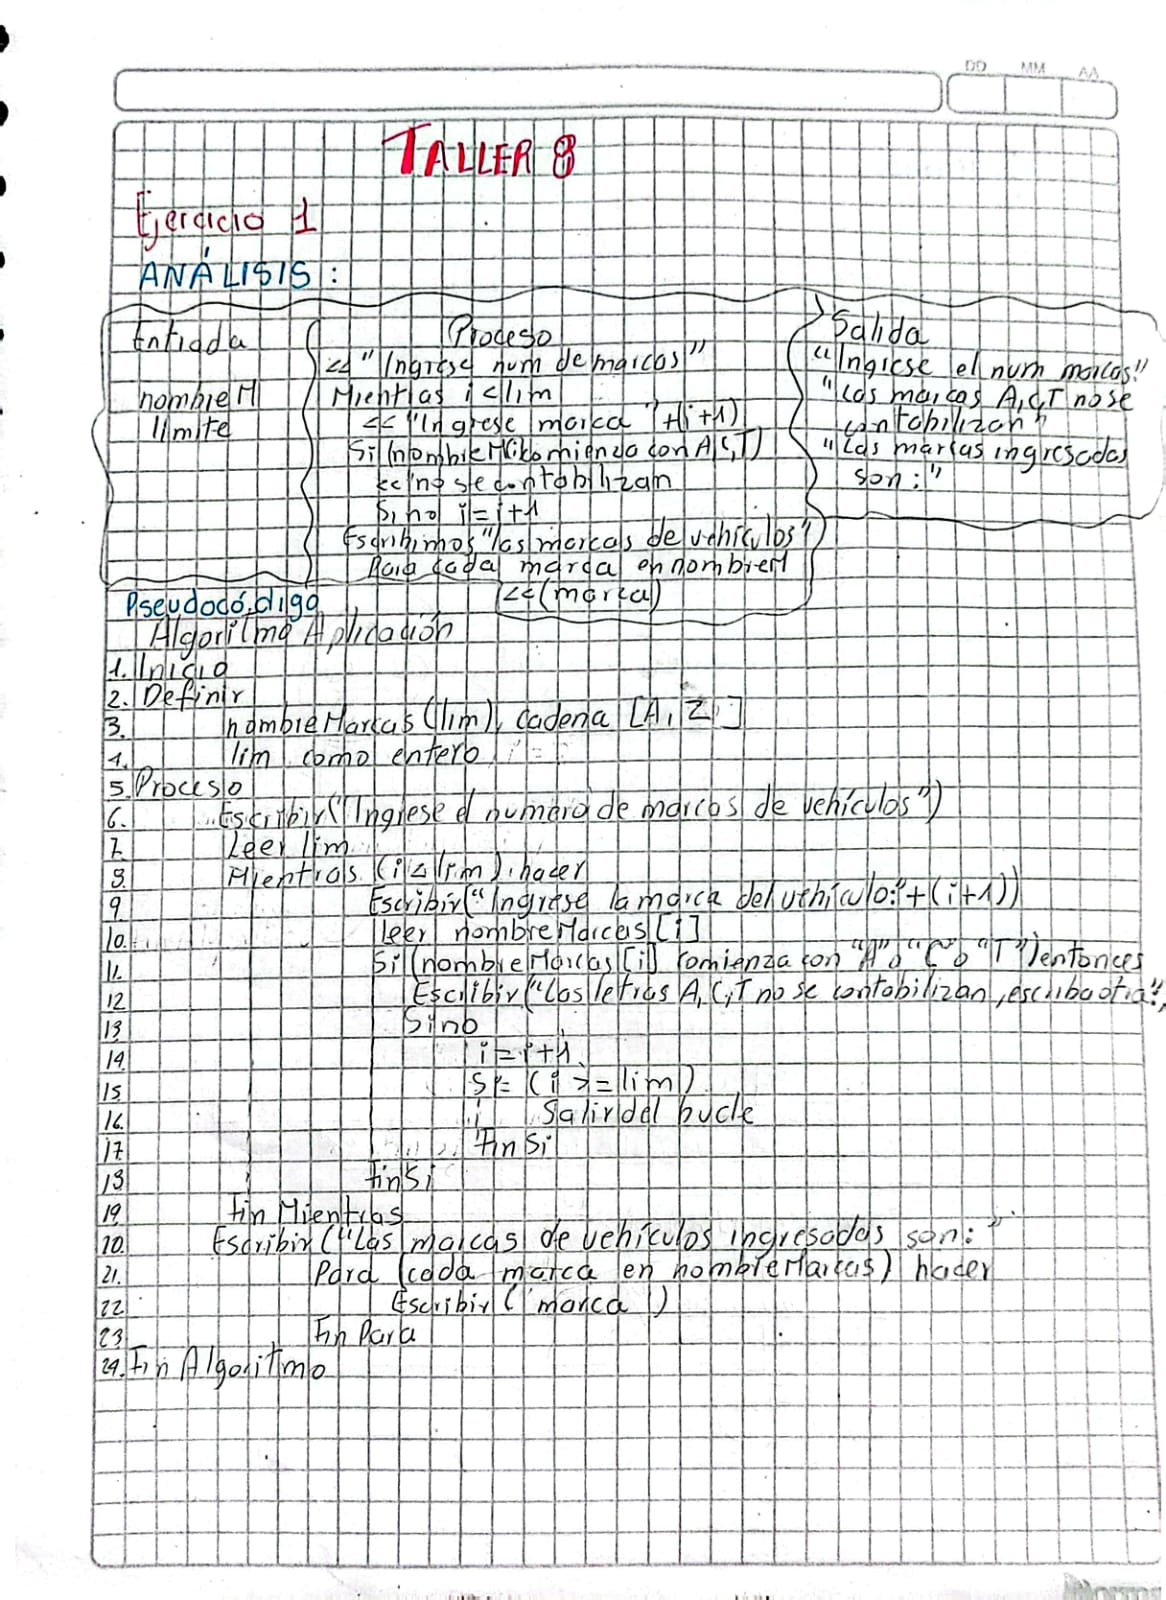 DD MM AA
TALLER 8
Ejercicio 1
ANÁLISIS:
Entrada
nombreM
limite
Proceso
<< "Ingrese num de marcas"
Mientras i<lim
<< "Ingrese marca "+(i+1)
Si (nombreM[i] comienza con A,C,T)
<< "no se contabilizan
Si no i=i+1
Escribimos "las marcas de vehículos"
Para cada marca en nombreM
<<(marca)
Salida
"Ingrese el num marcas"
"Las marcas A,C,T no se
contabilizan"
"Las marcas ingresadas
son:"
Pseudocódigo
Algoritmo Aplicación
1. Inicio
2. Definir
3. nombreMarcas(lim), cadena [A,Z]
4. lim como entero
5. Proceso
6. Escribir("Ingrese el numero de marcas de vehículos")
7. Leer lim
8. Mientras (i<lim) hacer
9 Escribir("Ingrese la marca del vehículo:"+(i+1))
10. leer nombreMarcas[i]
11. Si (nombreMarcas[i] comienza con "A" o "C" o "T") entonces
12 Escribir("Las letras A,C,T no se contabilizan, escriba otra",
13 Sino
14 i=i+1
15 Si= (i >= lim)
16. Salir del bucle
17 Fin Si
18 FinSi
19 Fin Mientras
20. Escribir("Las marcas de vehículos ingresadas son:"
21. Para (cada marca en nombreMarcas) hacer
22 Escribir( marca )
23 Fin Para
24. Fin Algoritmo